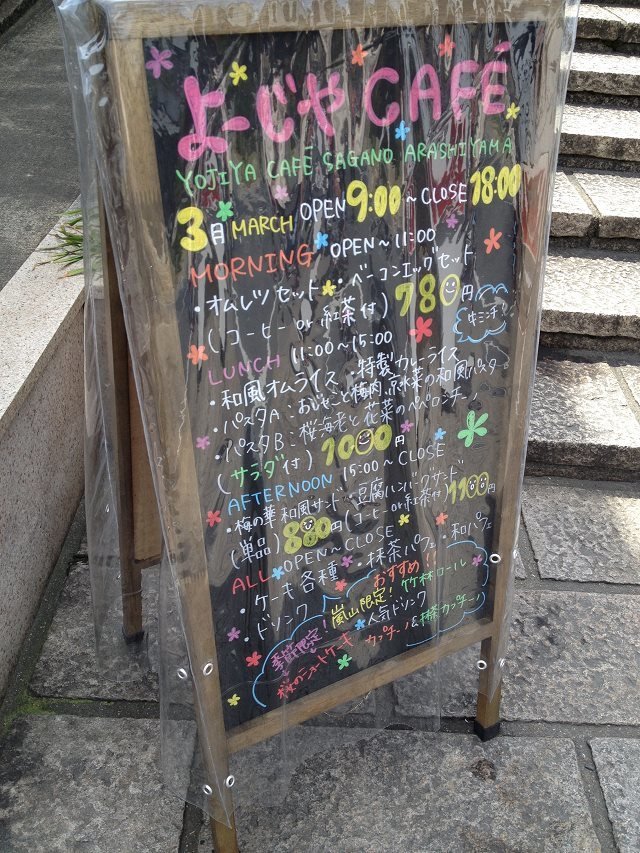 よーじや CAFÉ
YOJIYA CAFÉ SAGANO ARASHIYAMA
3月 MARCH OPEN 9:00～CLOSE 18:00
MORNING OPEN～11:00
・オムレツセット ・ベーコンエッグセット
(コーヒー or 紅茶付) 780円
LUNCH 11:00～15:00
・和風オムライス ・特製カレーライス
・パスタA：おじゃこと梅肉、水菜の和風パスタ
・パスタB：桜海老と花菜のペペロンチーノ
(サラダ付) 1000円
AFTERNOON 15:00～CLOSE
・梅の華 和風サンド ・豆腐ハンバーグサンド
(単品) 880円 (コーヒー or 紅茶付) 1100
ALL OPEN～CLOSE
・ケーキ各種 ・抹茶パフェ ・和パフェ
・ドリンク おすすめ!!
季節限定! 嵐山限定! 竹林ロール
桜のショートケーキ 人気ドリンク
カプチーノ&抹茶カプチーノ